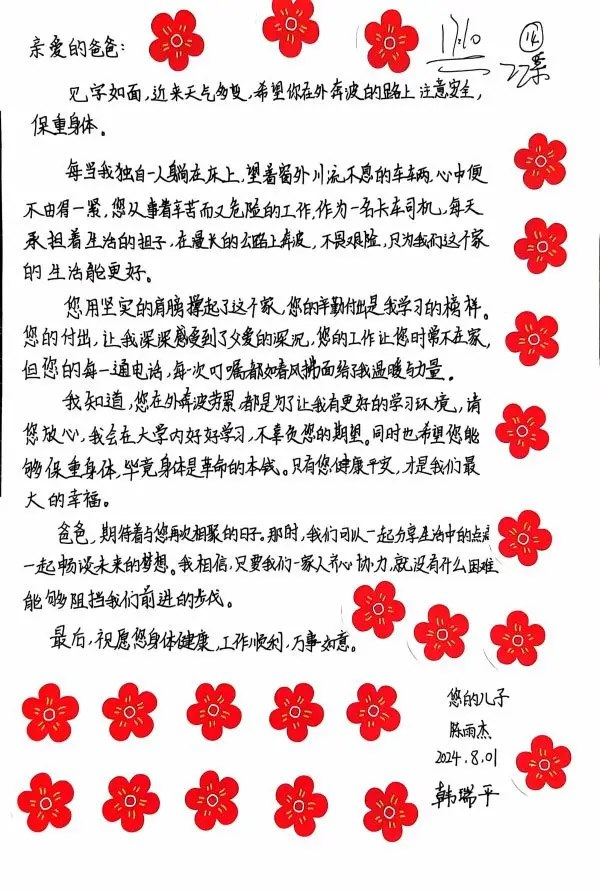 17:10
14
亲爱的爸爸:
见字如面,近来天气多变,希望你在外奔波的路上注意安全,
保重身体。
每当我独自一人躺在床上,望着窗外川流不息的车车两,心中便
不由得一紧,您从事着辛苦而又危险的工作,作为一名卡车司机,每天
承担着生活的担子,在漫长的公路上奔波,不畏艰险,只为我们这个家
的生活能更好。
您用坚实的肩膀撑起了这个家,您的辛勤付出是我学习的榜样。
您的付出,让我深深感受到了父爱的深沉,您的工作让您时常不在家,
但您的每一通电话,每一次叮嘱都如春风拂面给了我温暖与力量。
我知道,您在外奔波劳累,都是为了让我有更好的学习环境,请
您放心,我会在大学内好好学习,不辜负您的期望。同时也希望您能
够保重身体,毕竟身体是革命的本钱。只有您健康平安,才是我们最
大的幸福。
爸爸,期待着与您再次相聚的日子。那时,我们可以一起分享生活中的点滴
一起畅谈未来的梦想。我相信,只要我们一家人齐心协力,就没有什么困难
能够阻挡我们前进的步伐。
最后,祝愿您身体健康,工作顺利,万事如意。
您的儿子
陈雨杰
2024.8.01
韩瑞平